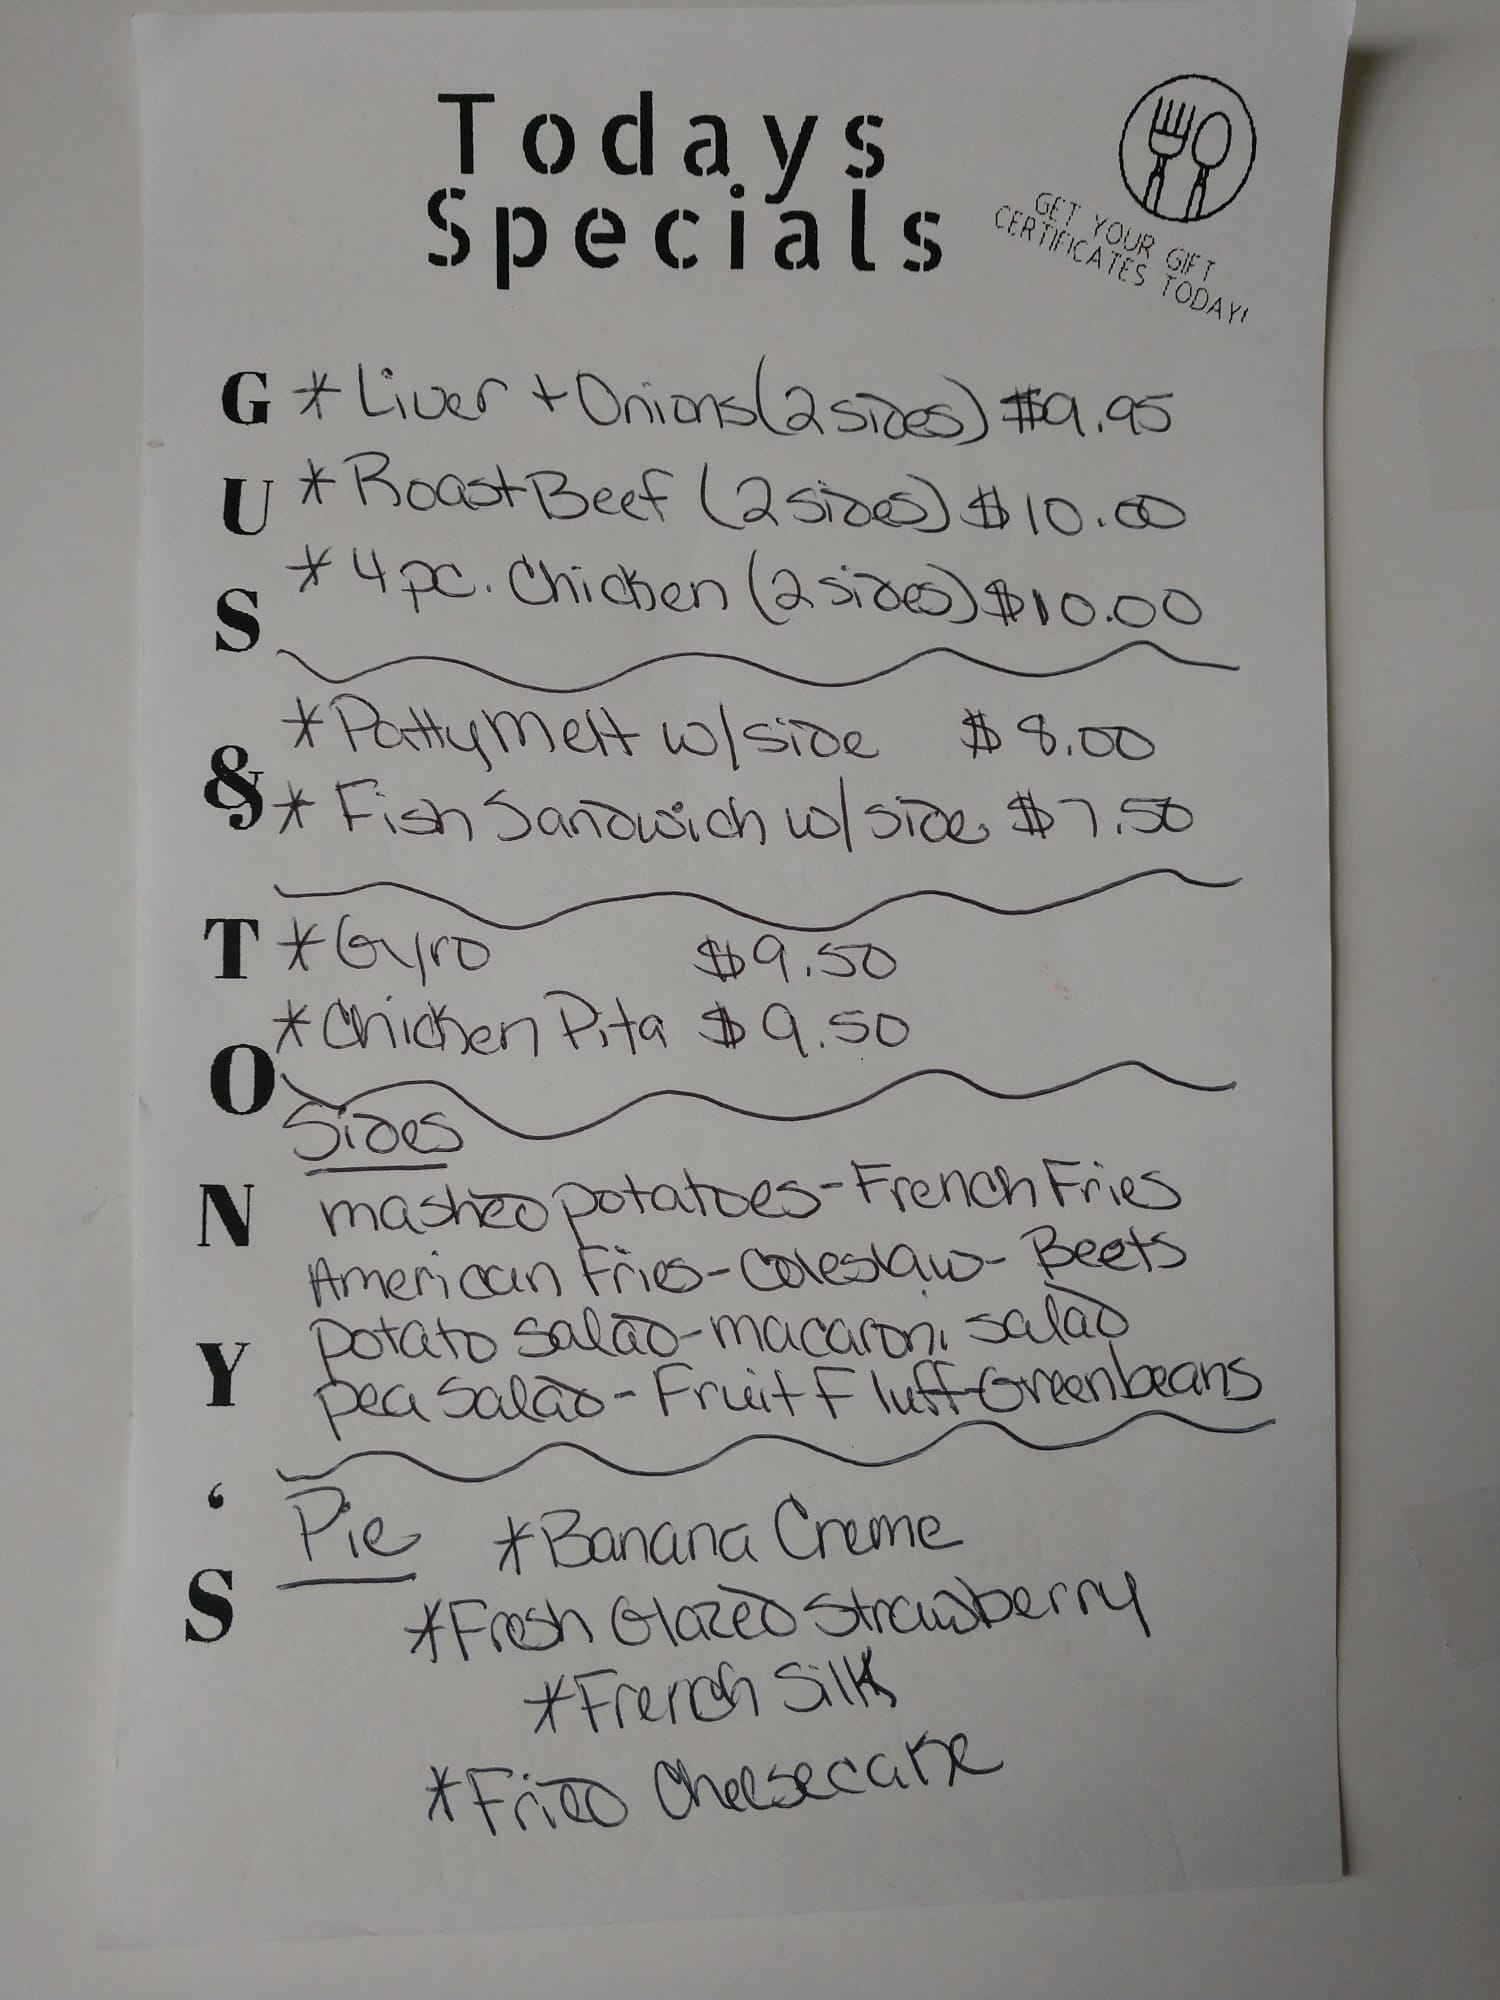 Todays
Specials
GET YOUR GIFT
CERTIFICATES TODAY!
GUS & TONY'S
*Liver + Onions (2 sides) $9.95
*Roast Beef (2 sides) $10.00
*4 pc. Chicken (2 sides) $10.00
*Patty Melt w/side $8.00
*Fish Sandwich w/side $7.50
*Gyro $9.50
*Chicken Pita $9.50
Sides
mashed potatoes-French Fries
American Fries-Coleslaw-Beets
potato salad-macaroni salad
pea salad-Fruit Fluff-Green beans
Pie *Banana Creme
*Fresh Glazed Strawberry
*French Silk
*Fried Cheesecake